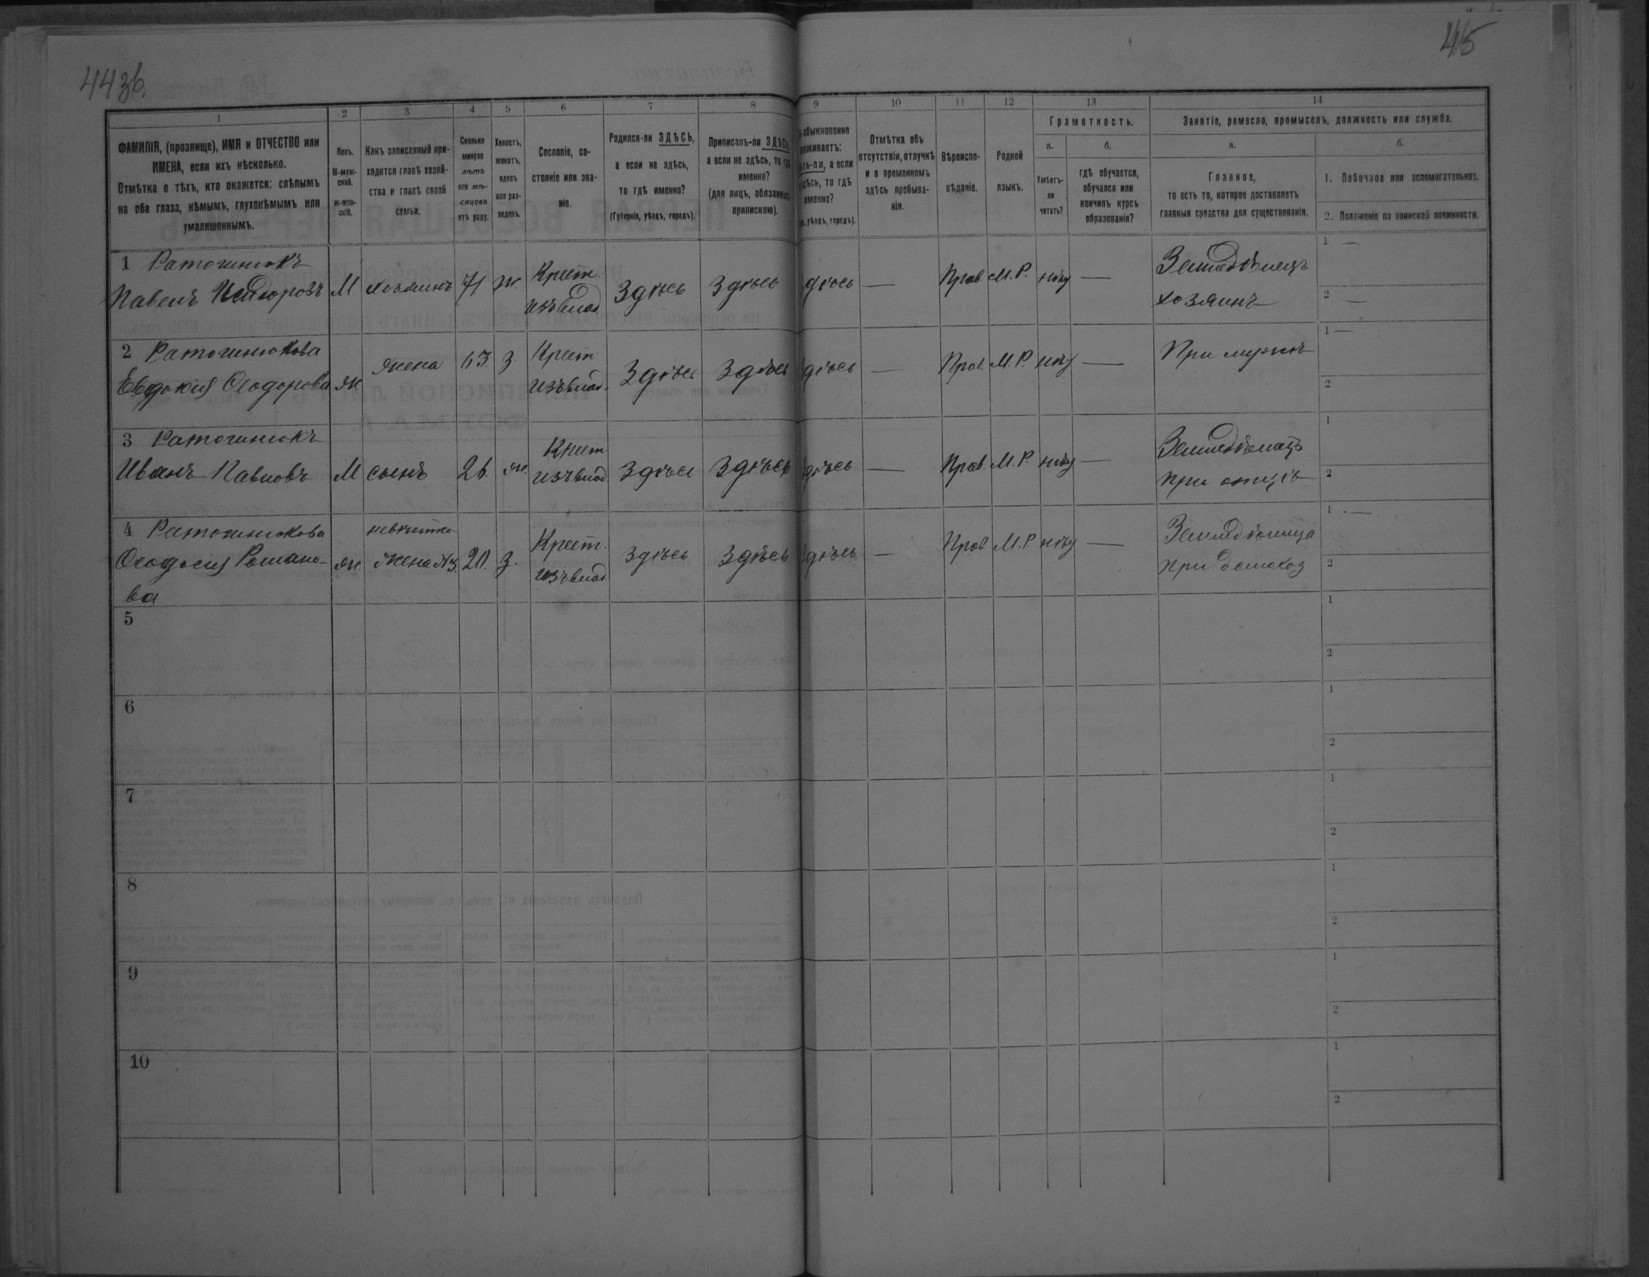 443б.
45
1
2
3
4
5
6
7
8
9
10
11
12
13
14
ФАМИЛІЯ, (прозвище), ИМЯ и ОТЧЕСТВО или
ИМЕНА, если ихъ нѣсколько.
Отмѣтка о тѣхъ, кто окажется: слѣпымъ
на оба глаза, нѣмымъ, глухонѣмымъ или
умалишеннымъ.
Полъ.
М-муж-
ской.
Ж-жен-
скій.
Какъ записанный при-
ходится главѣ хозяй-
ства и главѣ своей
семьи.
Сколько
минуло
лѣтъ
или мѣ-
сяцевъ
отъ роду.
Холостъ,
женатъ,
вдовъ
или раз-
веденъ.
Сословіе, со-
стояніе или зва-
ніе.
Родился-ли ЗДѢСЬ,
а если не здѣсь,
то гдѣ именно?
(Губернія, уѣздъ, городъ).
Приписанъ-ли ЗДѢСЬ,
а если не здѣсь, то гдѣ
именно?
(для лицъ, обязанныхъ
припискою).
обыкновенно
проживаетъ:
сь-ли, а если
здѣсь, то гдѣ
именно?
уѣздъ, городъ).
Отмѣтка объ
отсутствіи, отлучкѣ
и о временномъ
здѣсь пребыва-
ніи.
Вѣроиспо-
вѣданіе.
Родной
языкъ.
Грамотность.
а.
б.
Умѣетъ-
ли
читать?
гдѣ обучается,
обучался или
кончилъ курсъ
образованія?
Занятіе, ремесло, промыселъ, должность или служба.
а.
б.
Главное,
то есть то, которое доставляетъ
главныя средства для существованія.
1. Побочное или вспомогательное.
2. Положеніе по воинской повинности.
1 Ратогинюкъ
Павелъ Исидоровъ М хозяинъ 71 ж. Крест. изъ влад. Здѣсь Здѣсь здѣсь — Прав. М.Р. нѣтъ — Земледѣлецъ
хозяинъ
1 —
2 —
2 Ратогинюкова
Евдокія Ѳеодорова ж жена 63 з. Крест. изъ влад. Здѣсь Здѣсь здѣсь — Прав. М.Р. нѣтъ — При мужѣ
1 —
2
3 Ратогинюкъ
Иванъ Павловъ М сынъ 26 ж. Крест. изъ влад. Здѣсь Здѣсь здѣсь — Прав. М.Р. нѣтъ — Земледѣлецъ
при отцѣ
1
2
4 Ратогинюкова
Ѳеодосія Романо-
ва ж невѣстка жена №3 20. з. Крест. изъ влад. Здѣсь Здѣсь здѣсь — Прав. М.Р. нѣтъ — Земледѣлица
при
1 —
2
5
1
2
6
1
2
7
1
2
8
1
2
9
1
2
10
1
2